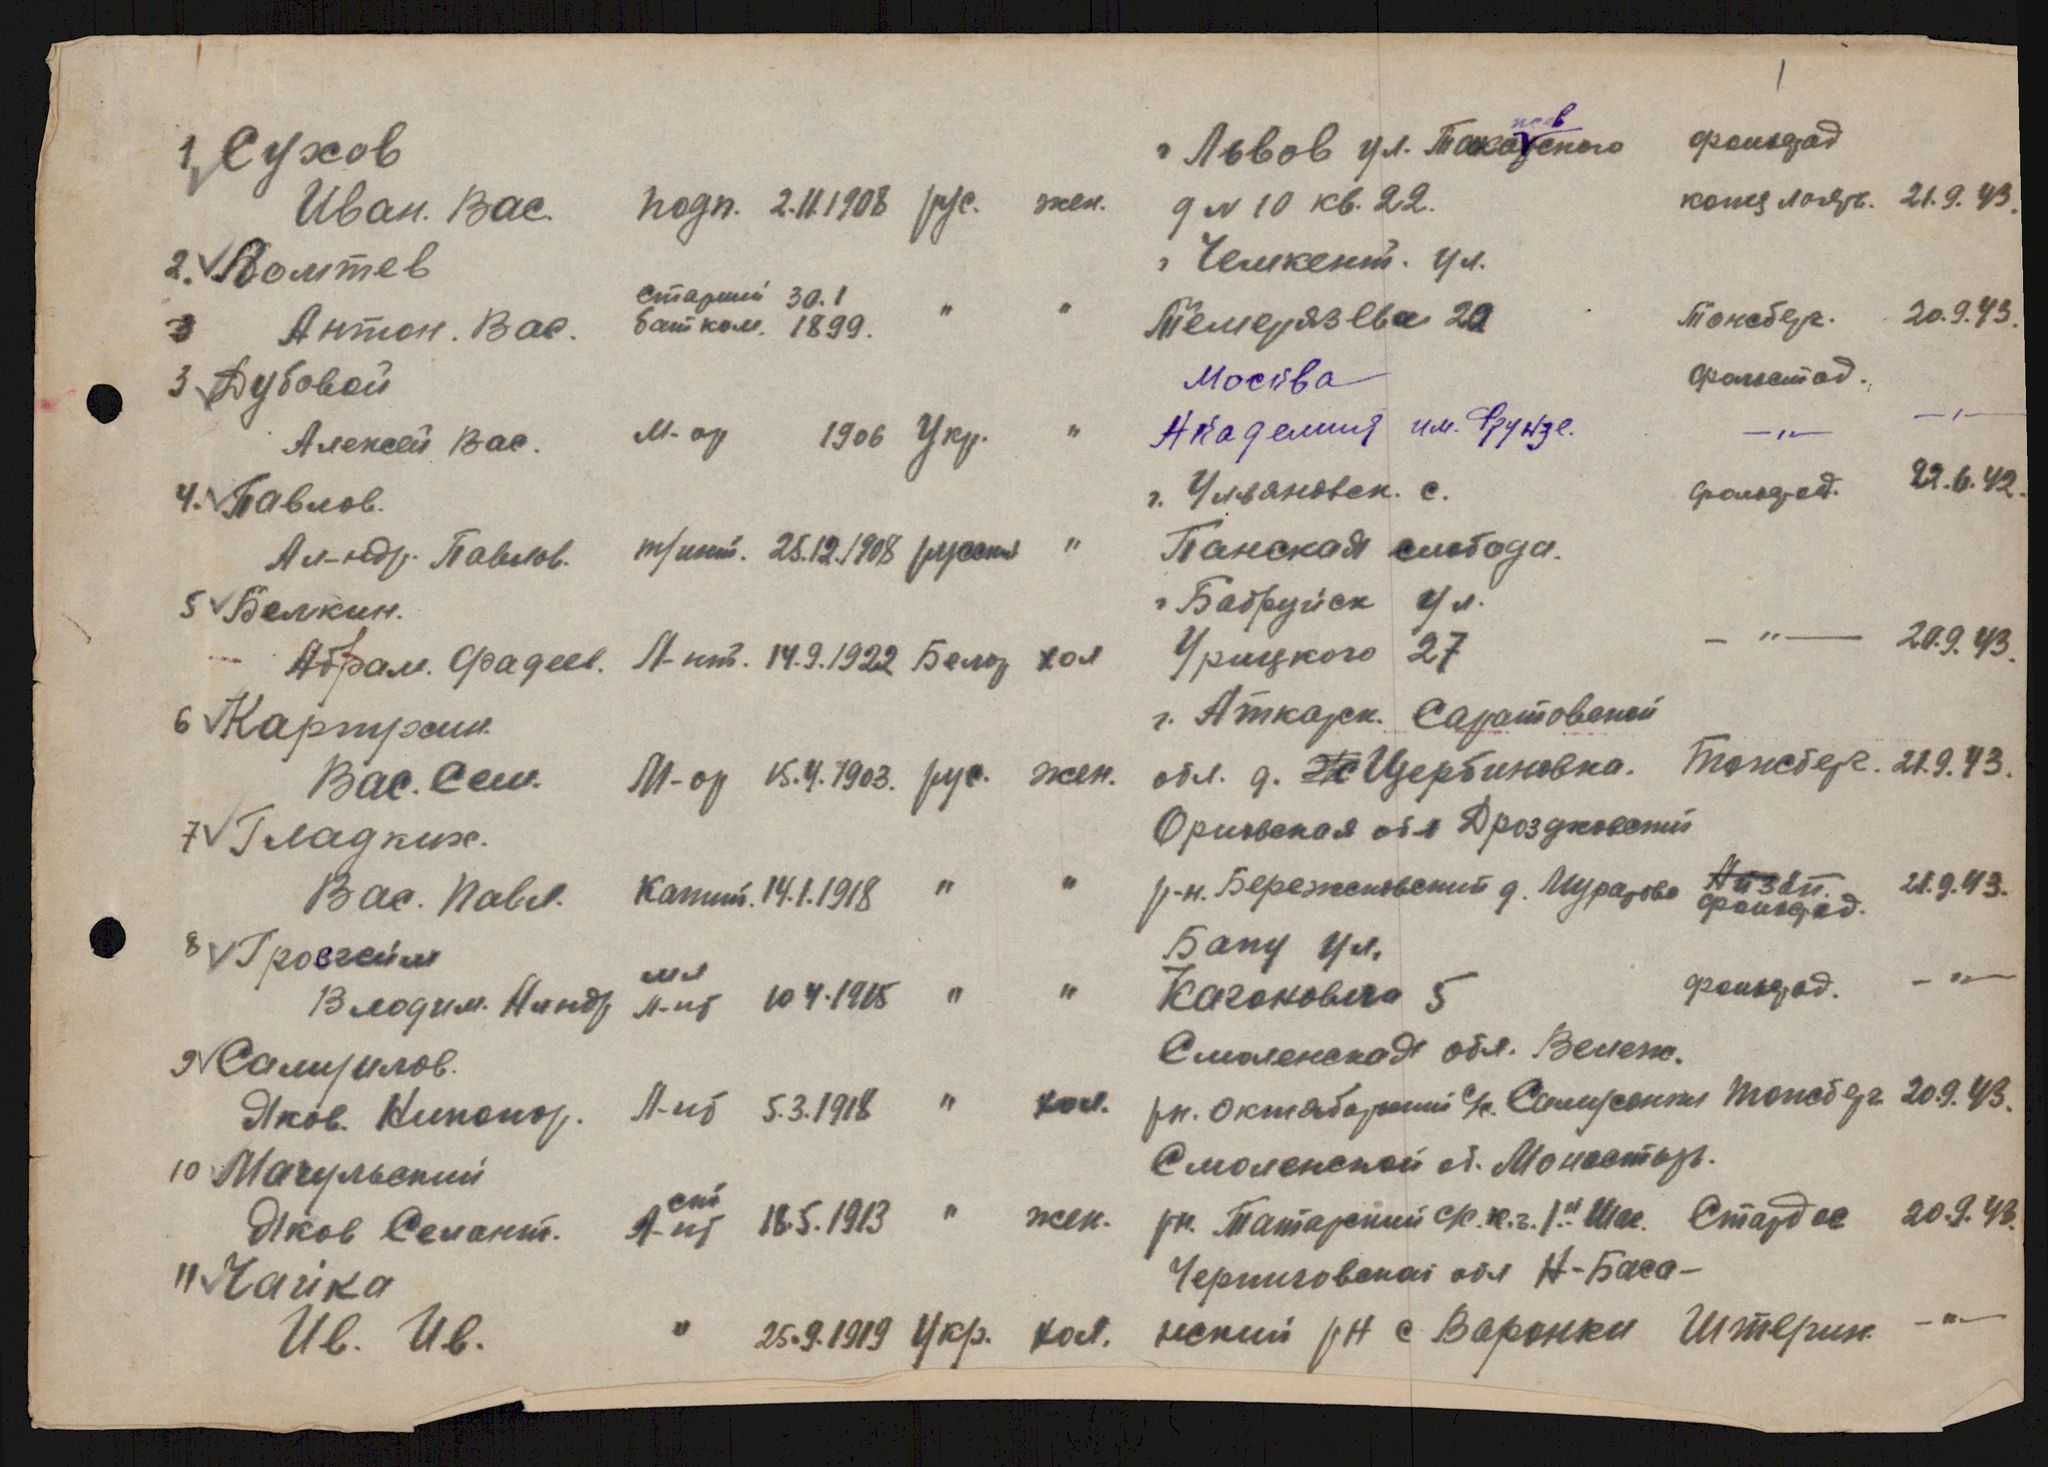 1
1 Сухов г Львов ул. фольдзад
Иван. Вас. подп. 2.11.1908 рус. жен. д № 10 кв. 22. конц лагрь. 21.9.43.
2. г Чемкент. ул.
Антон. Вас. старший батком. 30.1 1899. " " Темерязева Тонсберг. 20.9.43.
3 Дубовой Москва фольстад.
Алексей Вас. М-ор 1906 Укр. " Академия им. Фрунзе. —"— —"—
4. Павлов. г. Ульяновск. с. 22.6.42.
Ал-ндр. Павлов. т/инт. 25.12.1908 русский " Панская слобода.
5 Белкин. г Бабруйск ул.
Абрам. Фадеев. Л-нт. 14.9.1922 Белор хол Урицкого 27 — " — 20.9.43.
6 г. Аткарск. Саратовской
Вас. Сем. М-ор 15.4.1903. рус. жен. обл. д. Щербиновка. Тонсберг. 21.9.43.
7 Гладких. Орловская обл Дроздковский
Вас. Павл. Капит. 14.1.1918 " " р-н. д. Муратово фольдзад. 21.9.43.
8 Гросгейм Баку ул.
Владим. Алндр мл Л-нт 10 4.1915 " " Кагановича 5 фольдзад. — " —
9 Смоленская обл. Вележ.
Яков. Никонор. Л-нт 5.3.1918 " хол. рн. октябарский с/с. Тонсберг 20.9.43.
10 Мачульский Смоленской об. Монастырь.
Яков ст Л-нт 18.5.1913 " жен. рн. Татарский с/с. 20.9.43.
11 Чайка Черниговская обл Н-Баса-
Ив. Ив. " 25.9.1919 Укр. хол. нский рн с Варонки Штерин. — " —